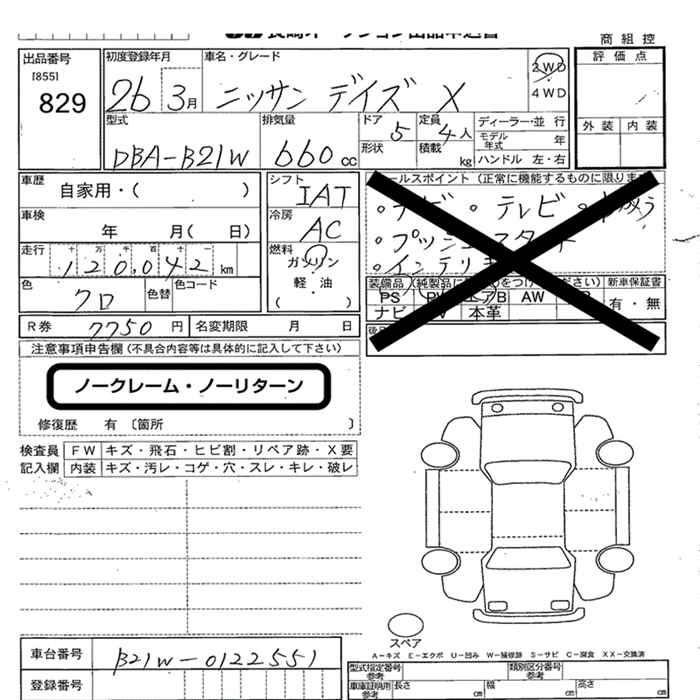 商組控
出品番号
[855]
829
初度登録年月
26 3月
車名・グレード
ニッサン デイズ X
2WD
4WD
評価点
外装 内装
型式
DBA-B21W
排気量
660cc
ドア 5
形状
定員 4人
積載 kg
ディーラー・並行
モデル年式 年
ハンドル 左・右
車歴
自家用・( )
車検
年 月( 日)
走行
十 万 千 百 十 一
120,042 km
色
クロ
色替
色コード
シフト
IAT
冷房
AC
燃料
ガソリン
軽・油
( )
ールスポイント(正常に機能するものに限りま
・テレビ
・プッシュスタート
・インテリキ
装備品 (純製品に をつけ ださい) 新車保証書
PS エアB AW
ナビ 本革
有・無
R券 7750円
名変期限 月 日
注意事項申告欄(不具合内容等は具体的に記入して下さい)
ノークレーム・ノーリターン
修復歴 有 〔箇所 〕
検査員記入欄
FW キズ・飛石・ヒビ割・リペア跡・X要
内装 キズ・汚レ・コゲ・穴・スレ・キレ・破レ
スペア
A-キズ E-エクボ U-凹み W-補修跡 S-サビ C-腐食 XX-交換済
車台番号 B21W-0122551
登録番号
型式指定番号 参考
類別区分番号 参考
車庫証明用 参考 長さ cm 幅 cm 高さ cm